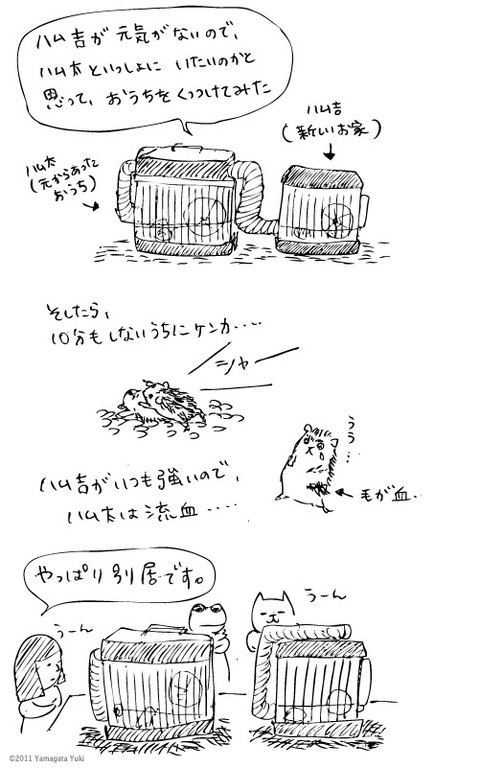 ハム吉が元気がないので、
ハム太といっしょに いたいのかと
思って、おうちをくっつけてみた
ハム吉
(新しいお家)
ハム太
(元からあった
おうち)
そしたら、
10分もしないうちにケンカ....
シャー
うう...
ハム吉がいつも強いので、
ハム太は流血‥‥
毛が血..
やっぱり別居です。
うーん
うーん
©2011 Yamagata Yuki